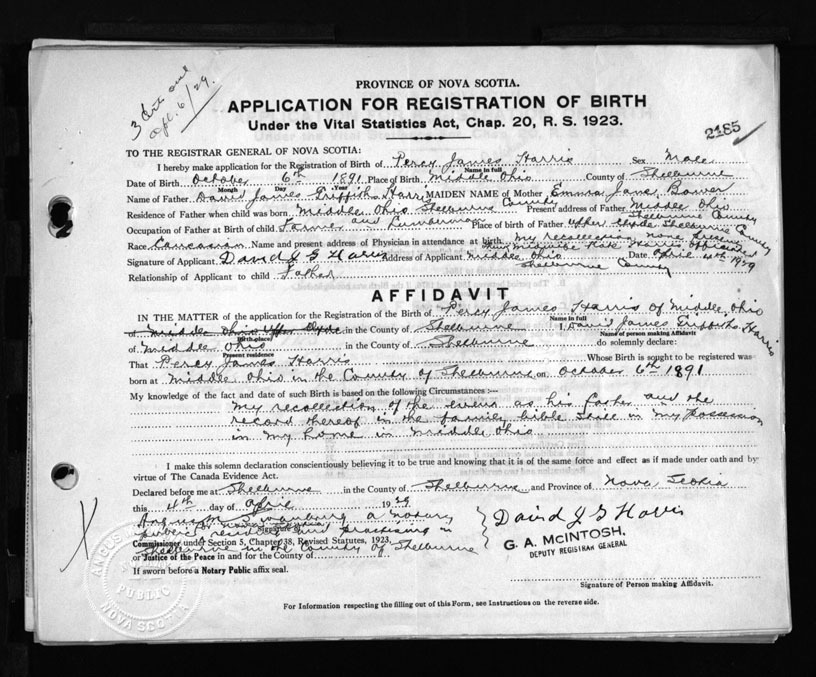 3
6/29.
PROVINCE OF NOVA SCOTIA.
APPLICATION FOR REGISTRATION OF BIRTH
Under the Vital Statistics Act, Chap. 20, R. S. 1923.
2185
TO THE REGISTRAR GENERAL OF NOVA SCOTIA:
I hereby make application for the Registration of Birth of Percy James Harris Sex Male
Name in full
Date of Birth October 6th 1891 Place of Birth Middle Ohio County of Shelburne
Month Day Year
Name of Father David James Griffiths Harris MAIDEN NAME of Mother Emma Jane Bower
Residence of Father when child was born Middle Ohio Shelburne County Present address of Father Middle Ohio
Shelburne County
Occupation of Father at Birth of child Farmer and Lumberman Place of birth of Father Upper Clyde Shelburne County
Race Caucasian Name and present address of Physician in attendance at birth my recollection none present
Signature of Applicant David J G Harris Address of Applicant Middle Ohio Date April 4th 1929
Shelburne County
Relationship of Applicant to child Father
AFFIDAVIT
IN THE MATTER of the application for the Registration of the Birth of Percy James Harris of Middle Ohio
Name in full
Middle Ohio Upper Clyde in the County of Shelburne I, David James Griffiths Harris
(Birth place) Name of person making Affidavit
of Middle Ohio in the County of Shelburne do solemnly declare:
Present residence
That Percy James Harris Whose Birth is sought to be registered was
born at Middle Ohio in the County of Shelburne on October 6th 1891
My knowledge of the fact and date of such Birth is based on the following Circumstances :—
My recollection of the event as his father and the
record thereof in the family bible still in my possession
in my home in Middle Ohio
I make this solemn declaration conscientiously believing it to be true and knowing that it is of the same force and effect as if made under oath and by
virtue of The Canada Evidence Act.
Declared before me at Shelburne in the County of Shelburne and Province of Nova Scotia
this 4th day of April 1929
a notary
public residing and practising in
Commissioner under Section 5, Chapter 38, Revised Statutes, 1923,
Shelburne in the County of Shelburne
or Justice of the Peace in and for the County of
If sworn before a Notary Public affix seal.
David J G Harris
G. A. McINTOSH,
DEPUTY REGISTRAR GENERAL
Signature of Person making Affidavit.
ANGUS
PUBLIC
NOVA SCOTIA
For Information respecting the filling out of this Form, see Instructions on the reverse side.